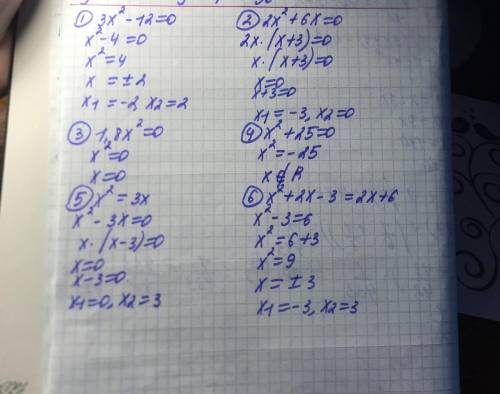 ① 3x²-12=0
x²-4=0
x²=4
x=±2
x1=-2 x2=2
② 2x²+6x=0
2x·(x+3)=0
x·(x+3)=0
x=0
x+3=0
x1=-3, x2=0
③ 1,8x²=0
x²=0
x=0
④ x²+25=0
x²=-25
x∉R
⑤ x²=3x
x²-3x=0
x·(x-3)=0
x=0
x-3=0
x1=0, x2=3
⑥ x²+2x-3=2x+6
x²-3=6
x²=6+3
x²=9
x=±3
x1=-3, x2=3